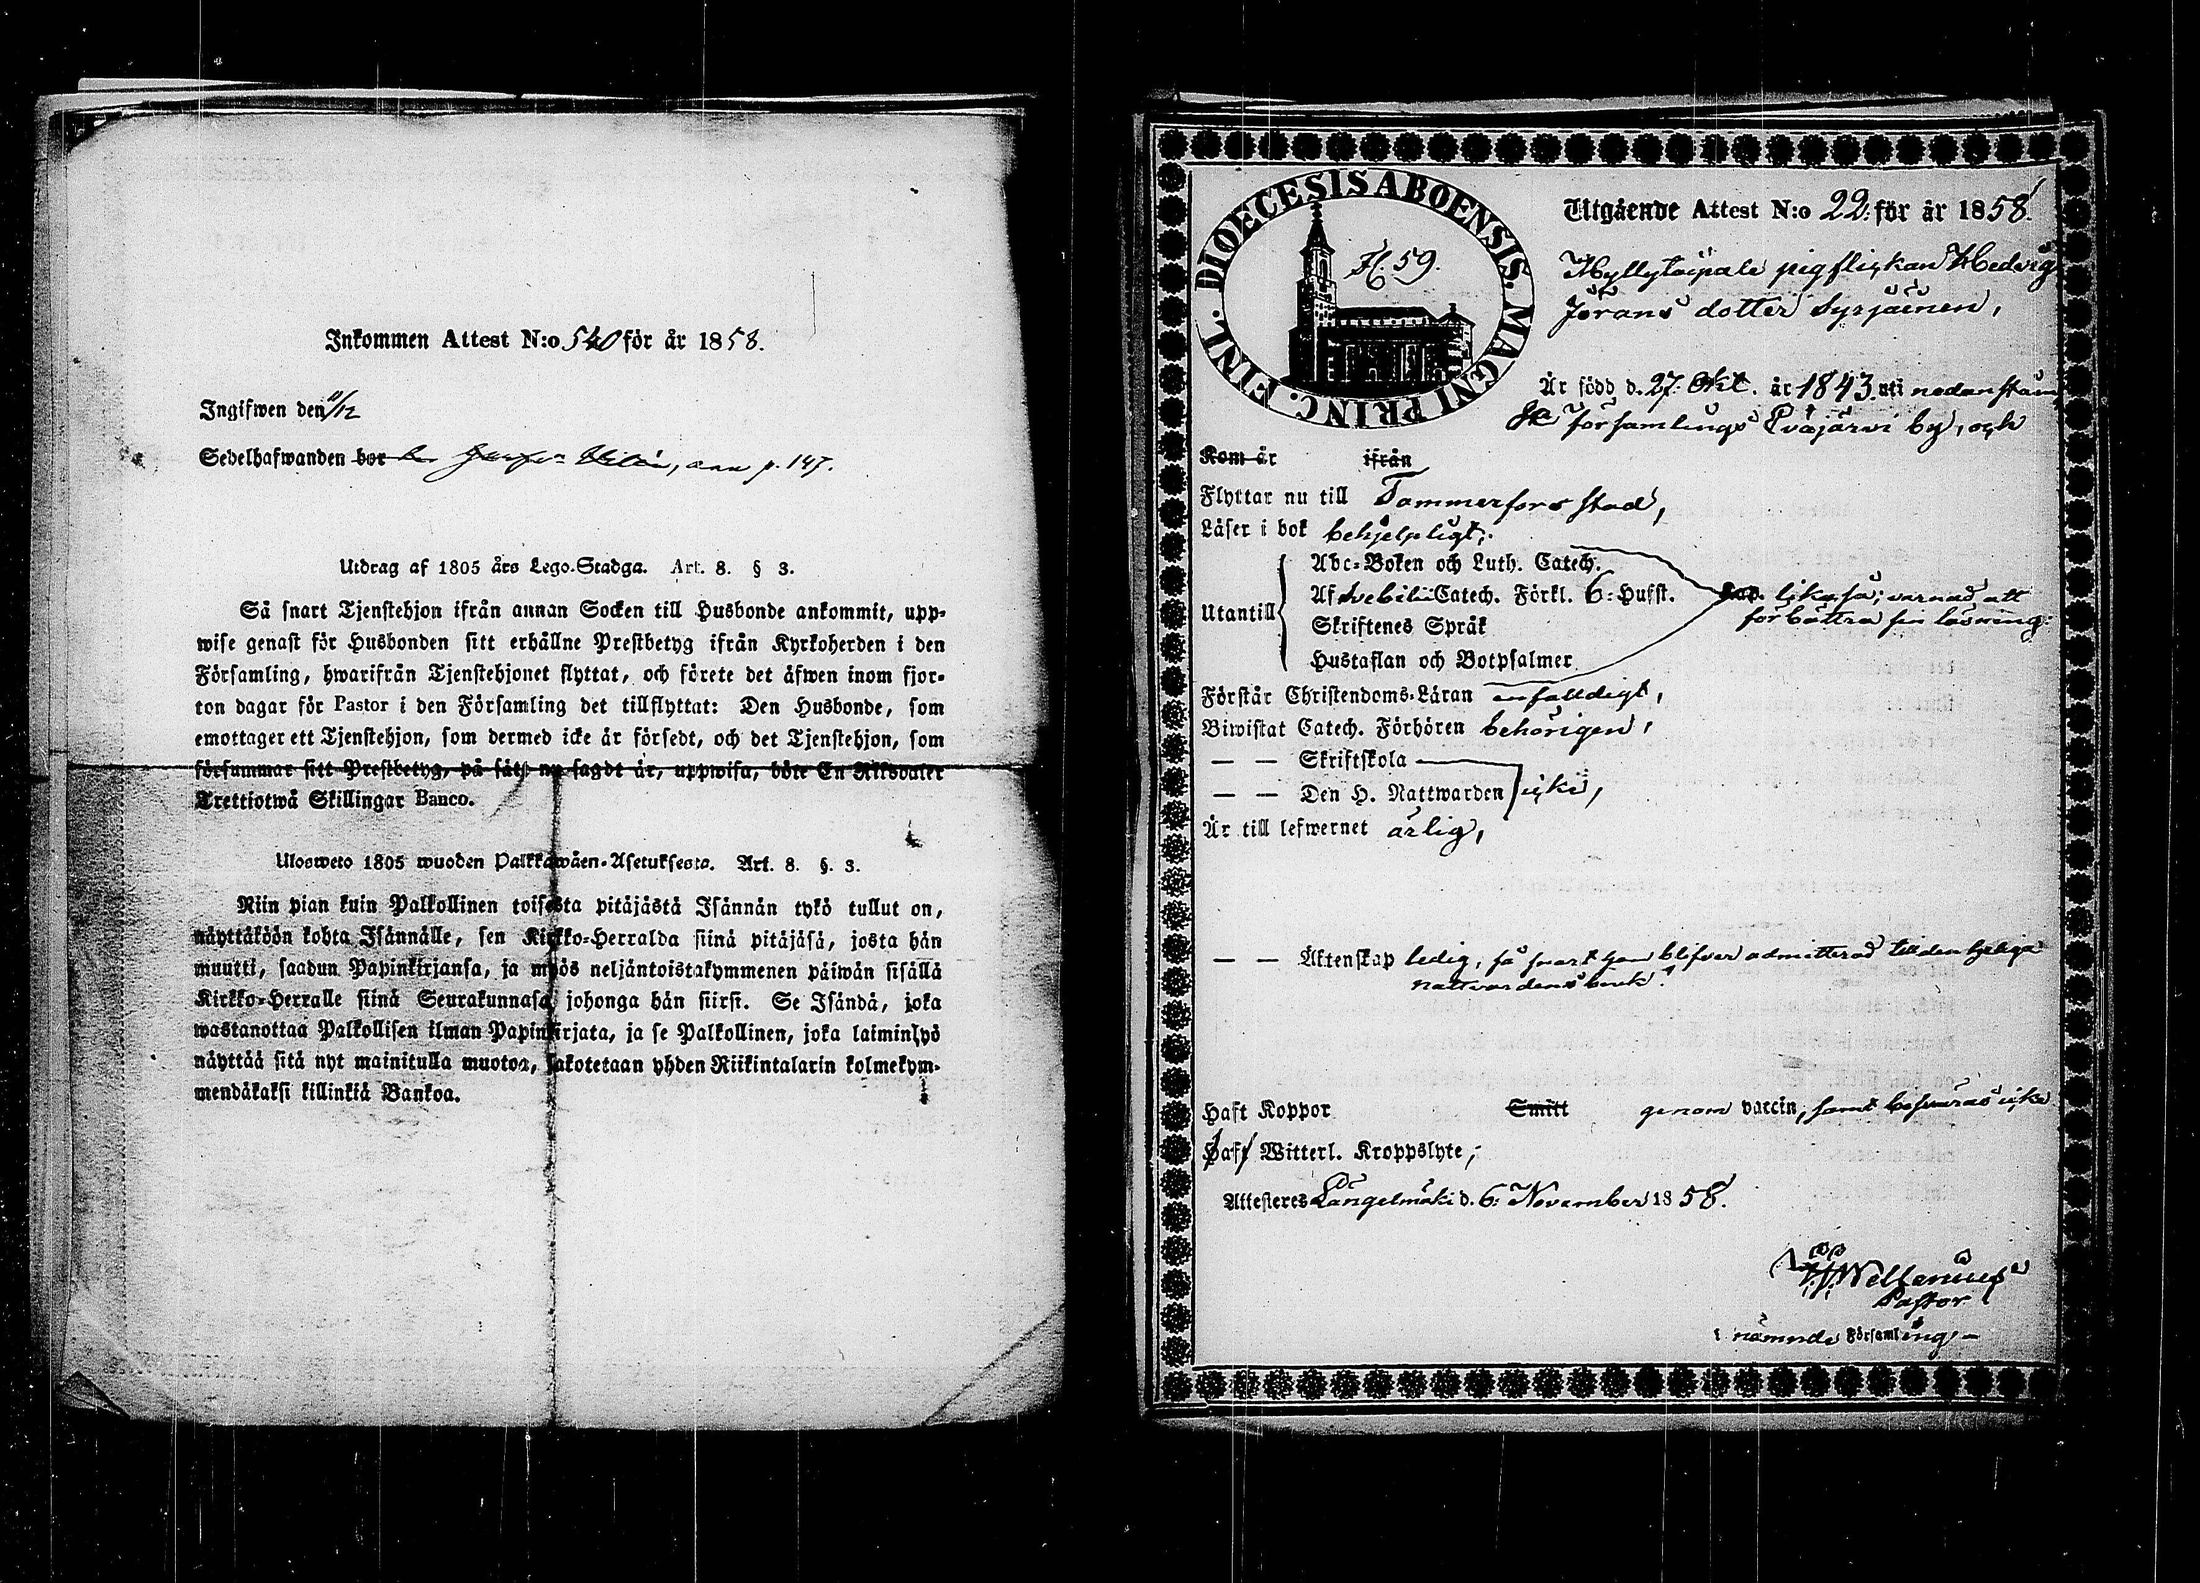 Inkommen Attest N:o 540 för år 1858.
Ingifwen den /12
Sedelhafwanden bor p. 147.
Utdrag af 1805 års Lego-Stadga. Art. 8. § 3.
Så snart Tjenstehjon ifrån annan Socken till Husbonde ankommit, upp-
wise genast för Husbonden sitt erhållne Prestbetyg ifrån Kyrkoherden i den
Församling, hwarifrån Tjenstehjonet flyttat, och förete det äfwen inom fjor-
ton dagar för Pastor i den Församling det tillflyttat: Den Husbonde, som
emottager ett Tjenstehjon, som dermed icke är försedt, och det Tjenstehjon, som
försummar sitt Prestbetyg, på sätt nu sagdt är, uppwisa, böte En Riksdaler
Trettiotwå Skillingar Banco.
Ulosweto 1805 wuoden Palkkawäen-Asetuksesta. Art. 8. §. 3.
Niin pian kuin Palkollinen toisesta pitäjästä Isännän tykö tullut on,
näyttäköön kohta Isännälle, sen Kirkko-Herralda siinä pitäjäsä, josta hän
muutti, saadun Papinkirjansa, ja myös neljäntoistakymmenen päiwän sisällä
Kirkko-Herralle siinä Seurakunnasa, johonga hän siirsi. Se Isändä, joka
wastanottaa Palkollisen ilman Papinkirjata, ja se Palkollinen, joka laiminlyö
näyttää sitä nyt mainitulla muotoa, sakotetaan yhden Riikintalarin kolmekym-
mendäkaksi killinkiä Bankoa.
DIOECESIS ABOENSIS. MAGNI PRINC. FINL.
H. 59.
Utgående Attest N:o 22: för år 1858.
Myllytaipale pigflickan Hedvig
Jörans dotter Syrjäinen,
Är född d. 27. Okt. år 1843 uti nedanståen
de församlings Eväjärvi by, och
Kom år ifrån
Flyttar nu till Tammerfors stad,
Läser i bok behjelpligt;
Utantill
Abc-Boken och Luth. Catech.
Af Svebilii Catech. Förkl. 6: Hufst. likaså; varnad att
Skriftenes Språk förbättra sin läsning.
Hustaflan och Botpsalmer
Förstår Christendoms-Läran enfaldigt,
Biwistat Catech. Förhören behörigen,
— — Skriftskola
— — Den H. Nattwarden icke,
Är till lefwernet ärlig,
— — Äktenskap ledig, så snart hon blifver admitterad till den heliga
nattvardens bruk.
Haft Koppor Smitt genom vaccin, samt besväras icke
Haft Witterl. Kroppslyte,
Attesteres Längelmäki d. 6: November 1858.
Pastor
i nämnde Församling. –